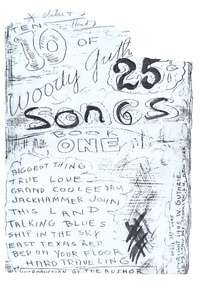 TEN
10 OF
Woody Guth
25¢
SONGS
BOOK
ONE
BIGGEST THING
TRUE LOVE
GRAND COOLEE DAM
JACKHAMMER JOHN
THIS LAND
TALKING BLUES
SHIP IN THE SKY
EAST TEXAS RED
BED ON YOUR FLOOR
HARD TRAVELING
BY THE AUTHOR
W. GUTHRIE